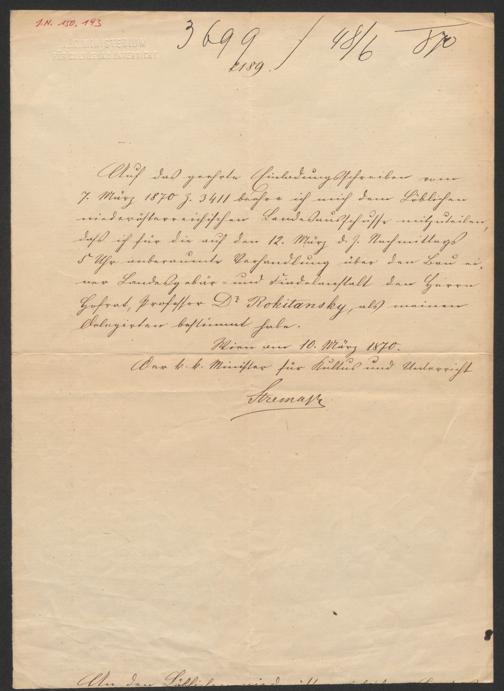 I.N. 150.193
MINISTERIUM
FÜR CULTUS UND UNTERRICHT
3699 / 48/6 870
2189.
Auf das geehrte Einladungsschreiben vom
7. März 1870 Z. 3411 beehre ich mich dem Löblichen
niederösterreichischen Landesausschusse mitzuteilen,
daß ich für die auf den 12. März d. J. Nachmittags
5 Uhr anberaumte Verhandlung über den Bau ei-
ner Landesgebär- und Findelanstalt den Herrn
Hofrat, Professor Dr Rokitansky, als meinen
Delegirten bestimmt habe.
Wien am 10. März 1870.
Der k. k. Minister für Kultus und Unterricht
Stremayr
An den Löblichen